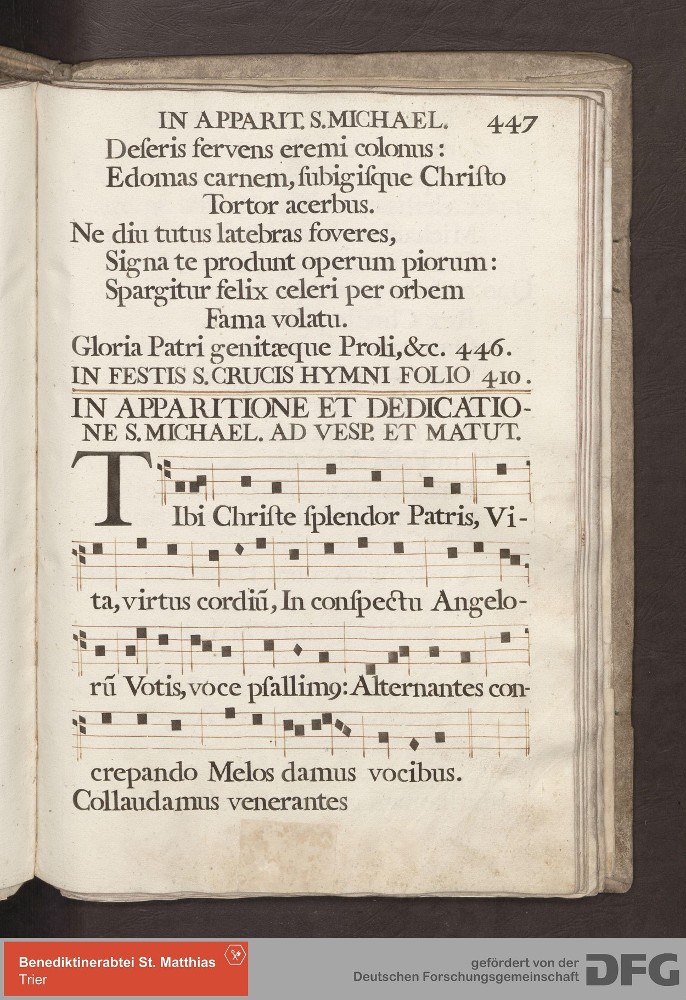 IN APPARIT. S. MICHAEL. 447
Deſeris fervens eremi colonus:
Edomas carnem, ſubigiſque Chriſto
Tortor acerbus.
Ne diu tutus latebras foveres,
Signa te produnt operum piorum:
Spargitur felix celeri per orbem
Fama volatu.
Gloria Patri genitæque Proli, &c. 446.
IN FESTIS S. CRUCIS HYMNI FOLIO 410.
IN APPARITIONE ET DEDICATIO-
NE S. MICHAEL. AD VESP. ET MATUT.
TIbi Chriſte ſplendor Patris, Vi-
ta, virtus cordiū, In conſpectu Angelo-
rū Votis, voce pſallimꝯ: Alternantes con-
crepando Melos damus vocibus.
Collaudamus venerantes
Benediktinerabtei St. Matthias
Trier
gefördert von der
Deutschen Forschungsgemeinschaft
DFG